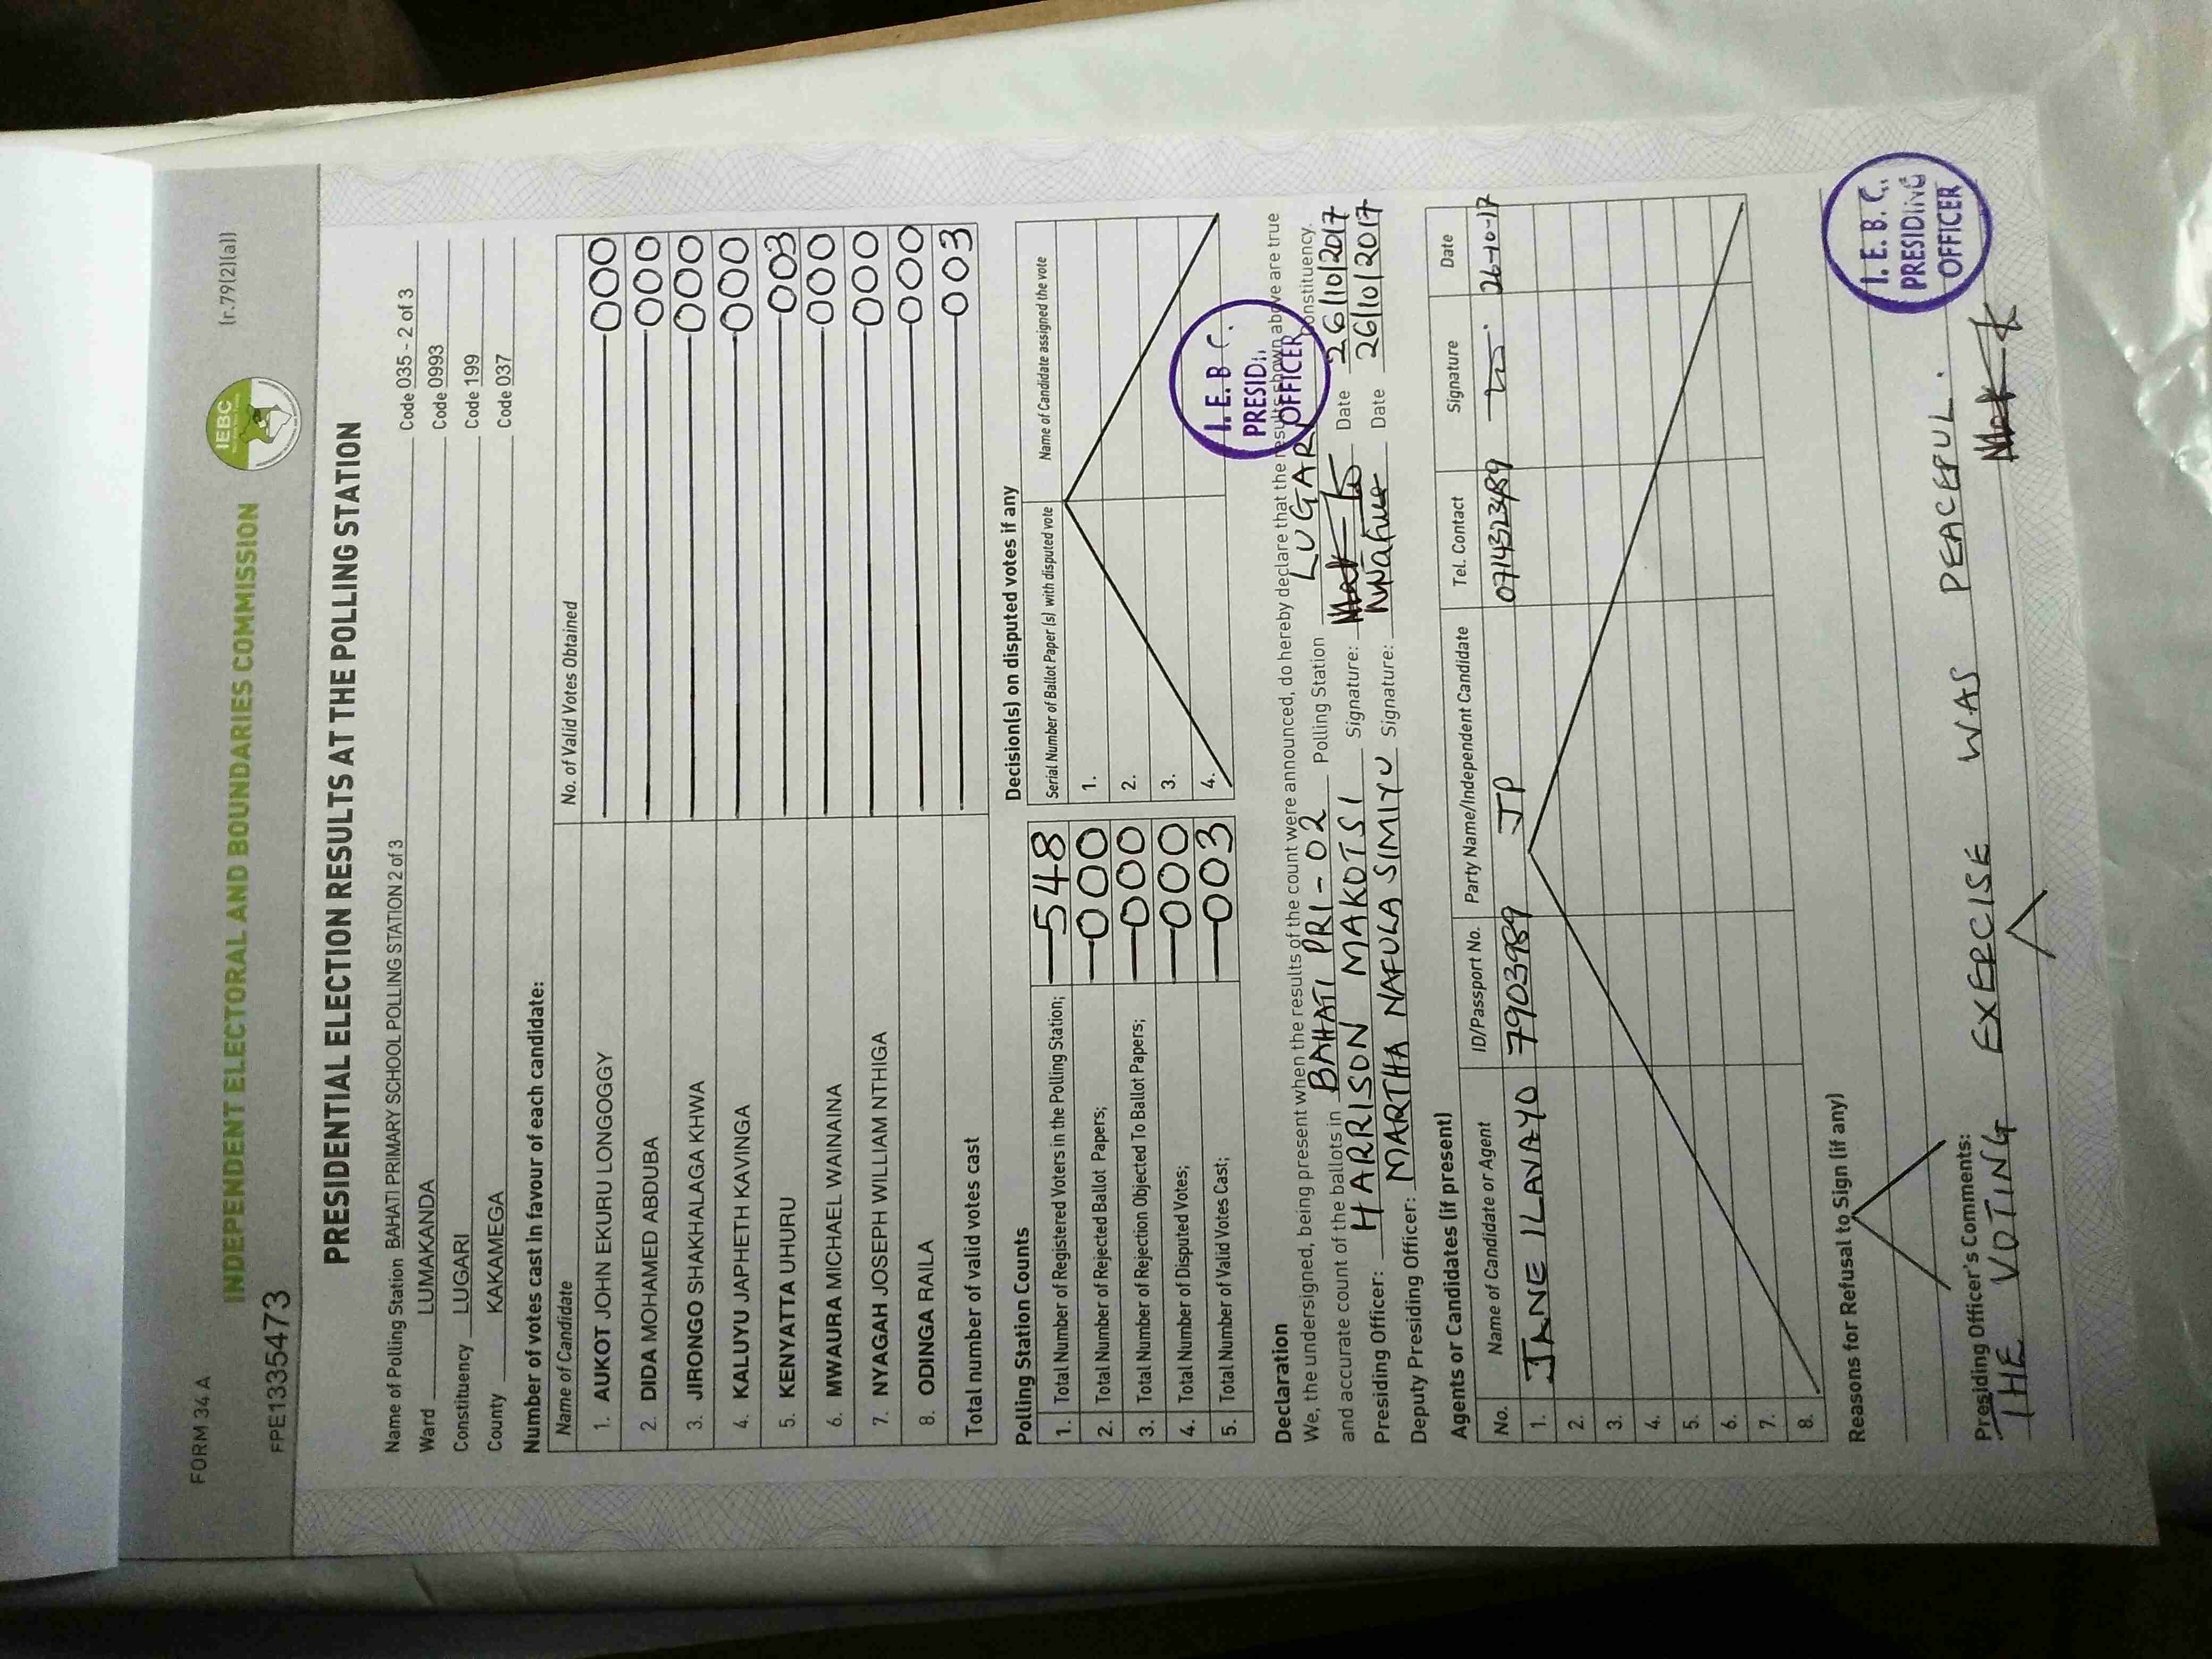 FORM 34 A
(r.79(2)(a))
IEBC
INDEPENDENT ELECTORAL AND BOUNDARIES COMMISSION
FPE1335473
PRESIDENTIAL ELECTION RESULTS AT THE POLLING STATION
Name of Polling Station BAHATI PRIMARY SCHOOL POLLING STATION 2 of 3 Code 035 - 2 of 3
Ward LUMAKANDA Code 0993
Constituency LUGARI Code 199
County KAKAMEGA Code 037
Number of votes cast in favour of each candidate:
Name of Candidate No. of Valid Votes Obtained
1. AUKOT JOHN EKURU LONGOGGY 000
2. DIDA MOHAMED ABDUBA 000
3. JIRONGO SHAKHALAGA KHWA 000
4. KALUYU JAPHETH KAVINGA 000
5. KENYATTA UHURU 003
6. MWAURA MICHAEL WAINAINA 000
7. NYAGAH JOSEPH WILLIAM NTHIGA 000
8. ODINGA RAILA 000
Total number of valid votes cast 003
Polling Station Counts
1. Total Number of Registered Voters in the Polling Station; 548
2. Total Number of Rejected Ballot Papers; 000
3. Total Number of Rejection Objected To Ballot Papers; 000
4. Total Number of Disputed Votes; 000
5. Total Number of Valid Votes Cast; 003
Decision(s) on disputed votes if any
Serial Number of Ballot Paper (s) with disputed vote Name of Candidate assigned the vote
1.
2.
3.
4.
I.E.B.C.
PRESIDI
OFFICER
Declaration
We, the undersigned, being present when the results of the count were announced, do hereby declare that the results shown above are true
and accurate count of the ballots in BAHATI PRI - 02 Polling Station LUGARI Constituency.
Presiding Officer: HARRISON MAKOTSI Signature: Date 26/10/2017
Deputy Presiding Officer: MARTHA NAFULA SIMIYU Signature: Date 26/10/2017
Agents or Candidates (if present)
No. Name of Candidate or Agent ID/Passport No. Party Name/Independent Candidate Tel. Contact Signature Date
1. JANE ILAVAYO 7903989 JP 0714323489 26-10-17
2.
3.
4.
5.
6.
7.
8.
Reasons for Refusal to Sign (if any)
Presiding Officer's Comments:
THE VOTING EXERCISE WAS PEACEFUL.
I.E.B.C.
PRESIDING
OFFICER